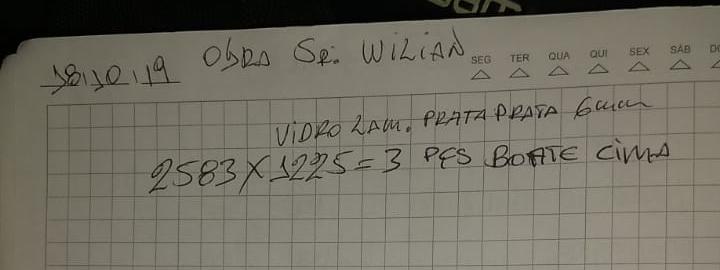 18,10,19 OBRA SR. WILIAN
SEG TER QUA QUI SEX SÁB
VIDRO LAM. PRATA PRATA 6mm
2583 X 1225 = 3 PÇS BOATE CIMA